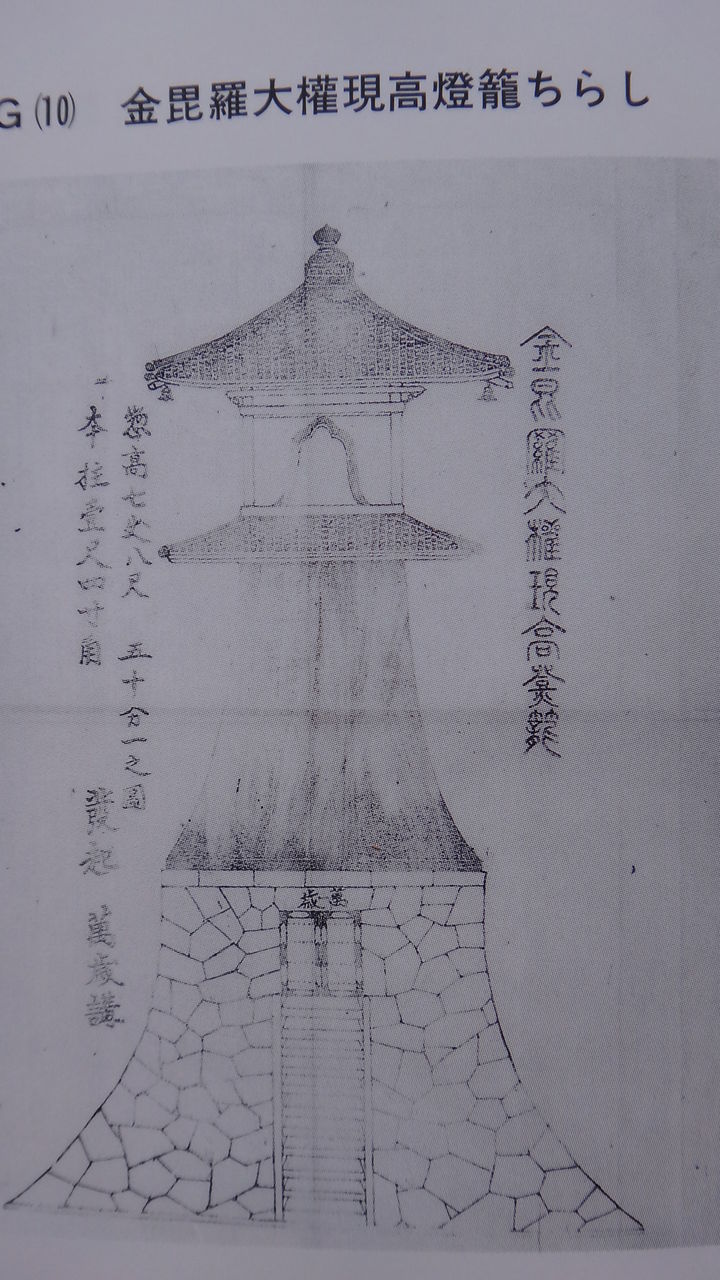 G (10) 金毘羅大權現高燈籠ちらし
金毘羅大權現高燈籠
惣高七丈八尺 五十分一之圖
一本柱壹尺四寸角
發起 萬歳講
萬歳